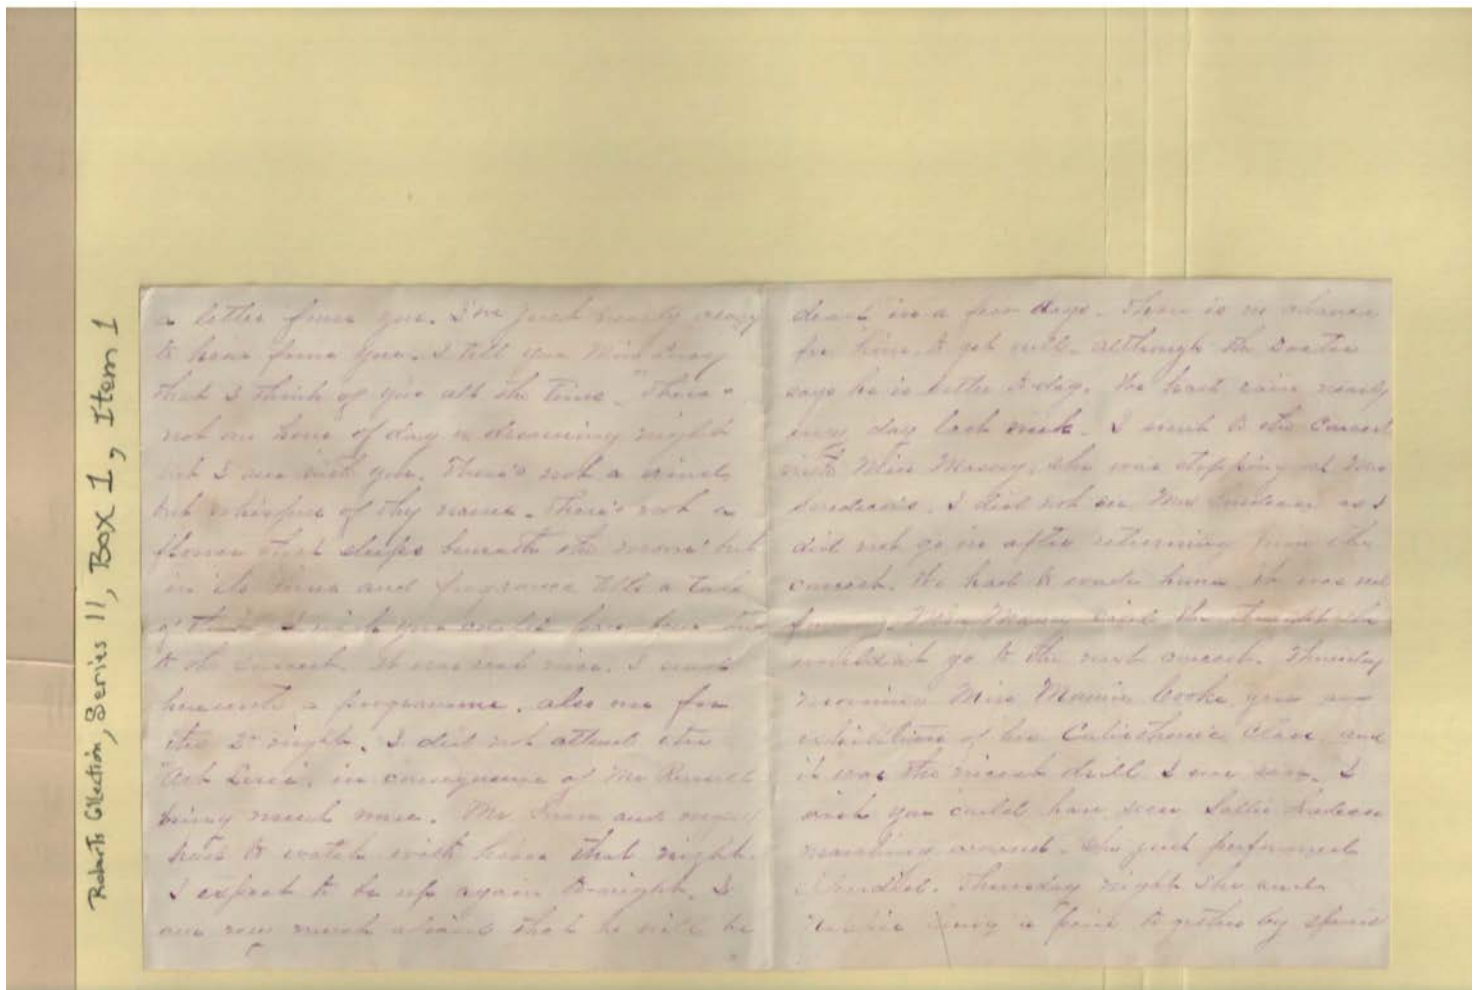 Roberts Collection, Series 11, Box 1, Item 1
a letter from you. I'm just nearly crazy
to hear from you. I tell you Miss
that I think of you all the time. "There's
not an hour of day or dreaming night
but I am with you. There's not a wind
but whispers of thy name. There's not a
flower that sleeps beneath the moon but
in its hues and fragrance tells a tale
of thee. I wish you could have
to the concert. It was real nice. I send
herewith a programme, also one for
the 2" night. I did not attend the
in consequence of Mr Russell
being much worse. Mr and myself
had to watch with him that night.
I expect to be up again to-night. I
am very much afraid that he will be
dead in a few days. There is no chance
for him to get well, although the Doctor
says he is better to-day. We had rain nearly
every day last week. I went to the Concert
with Miss Massey, she was stopping at Mrs
I did not see Mrs as I
did not go in after returning from the
concert. We had to wade home, it was real
funny. Miss said she thought she
wouldn't go to the next concert. Thursday
morning Miss Mamie Cooke gave an
exhibition of her Calisthenic Class, and
it was the nicest drill I ever saw. I
wish you could have seen Sallie
marching around. She just performed
Thursday night she and
a piece together by